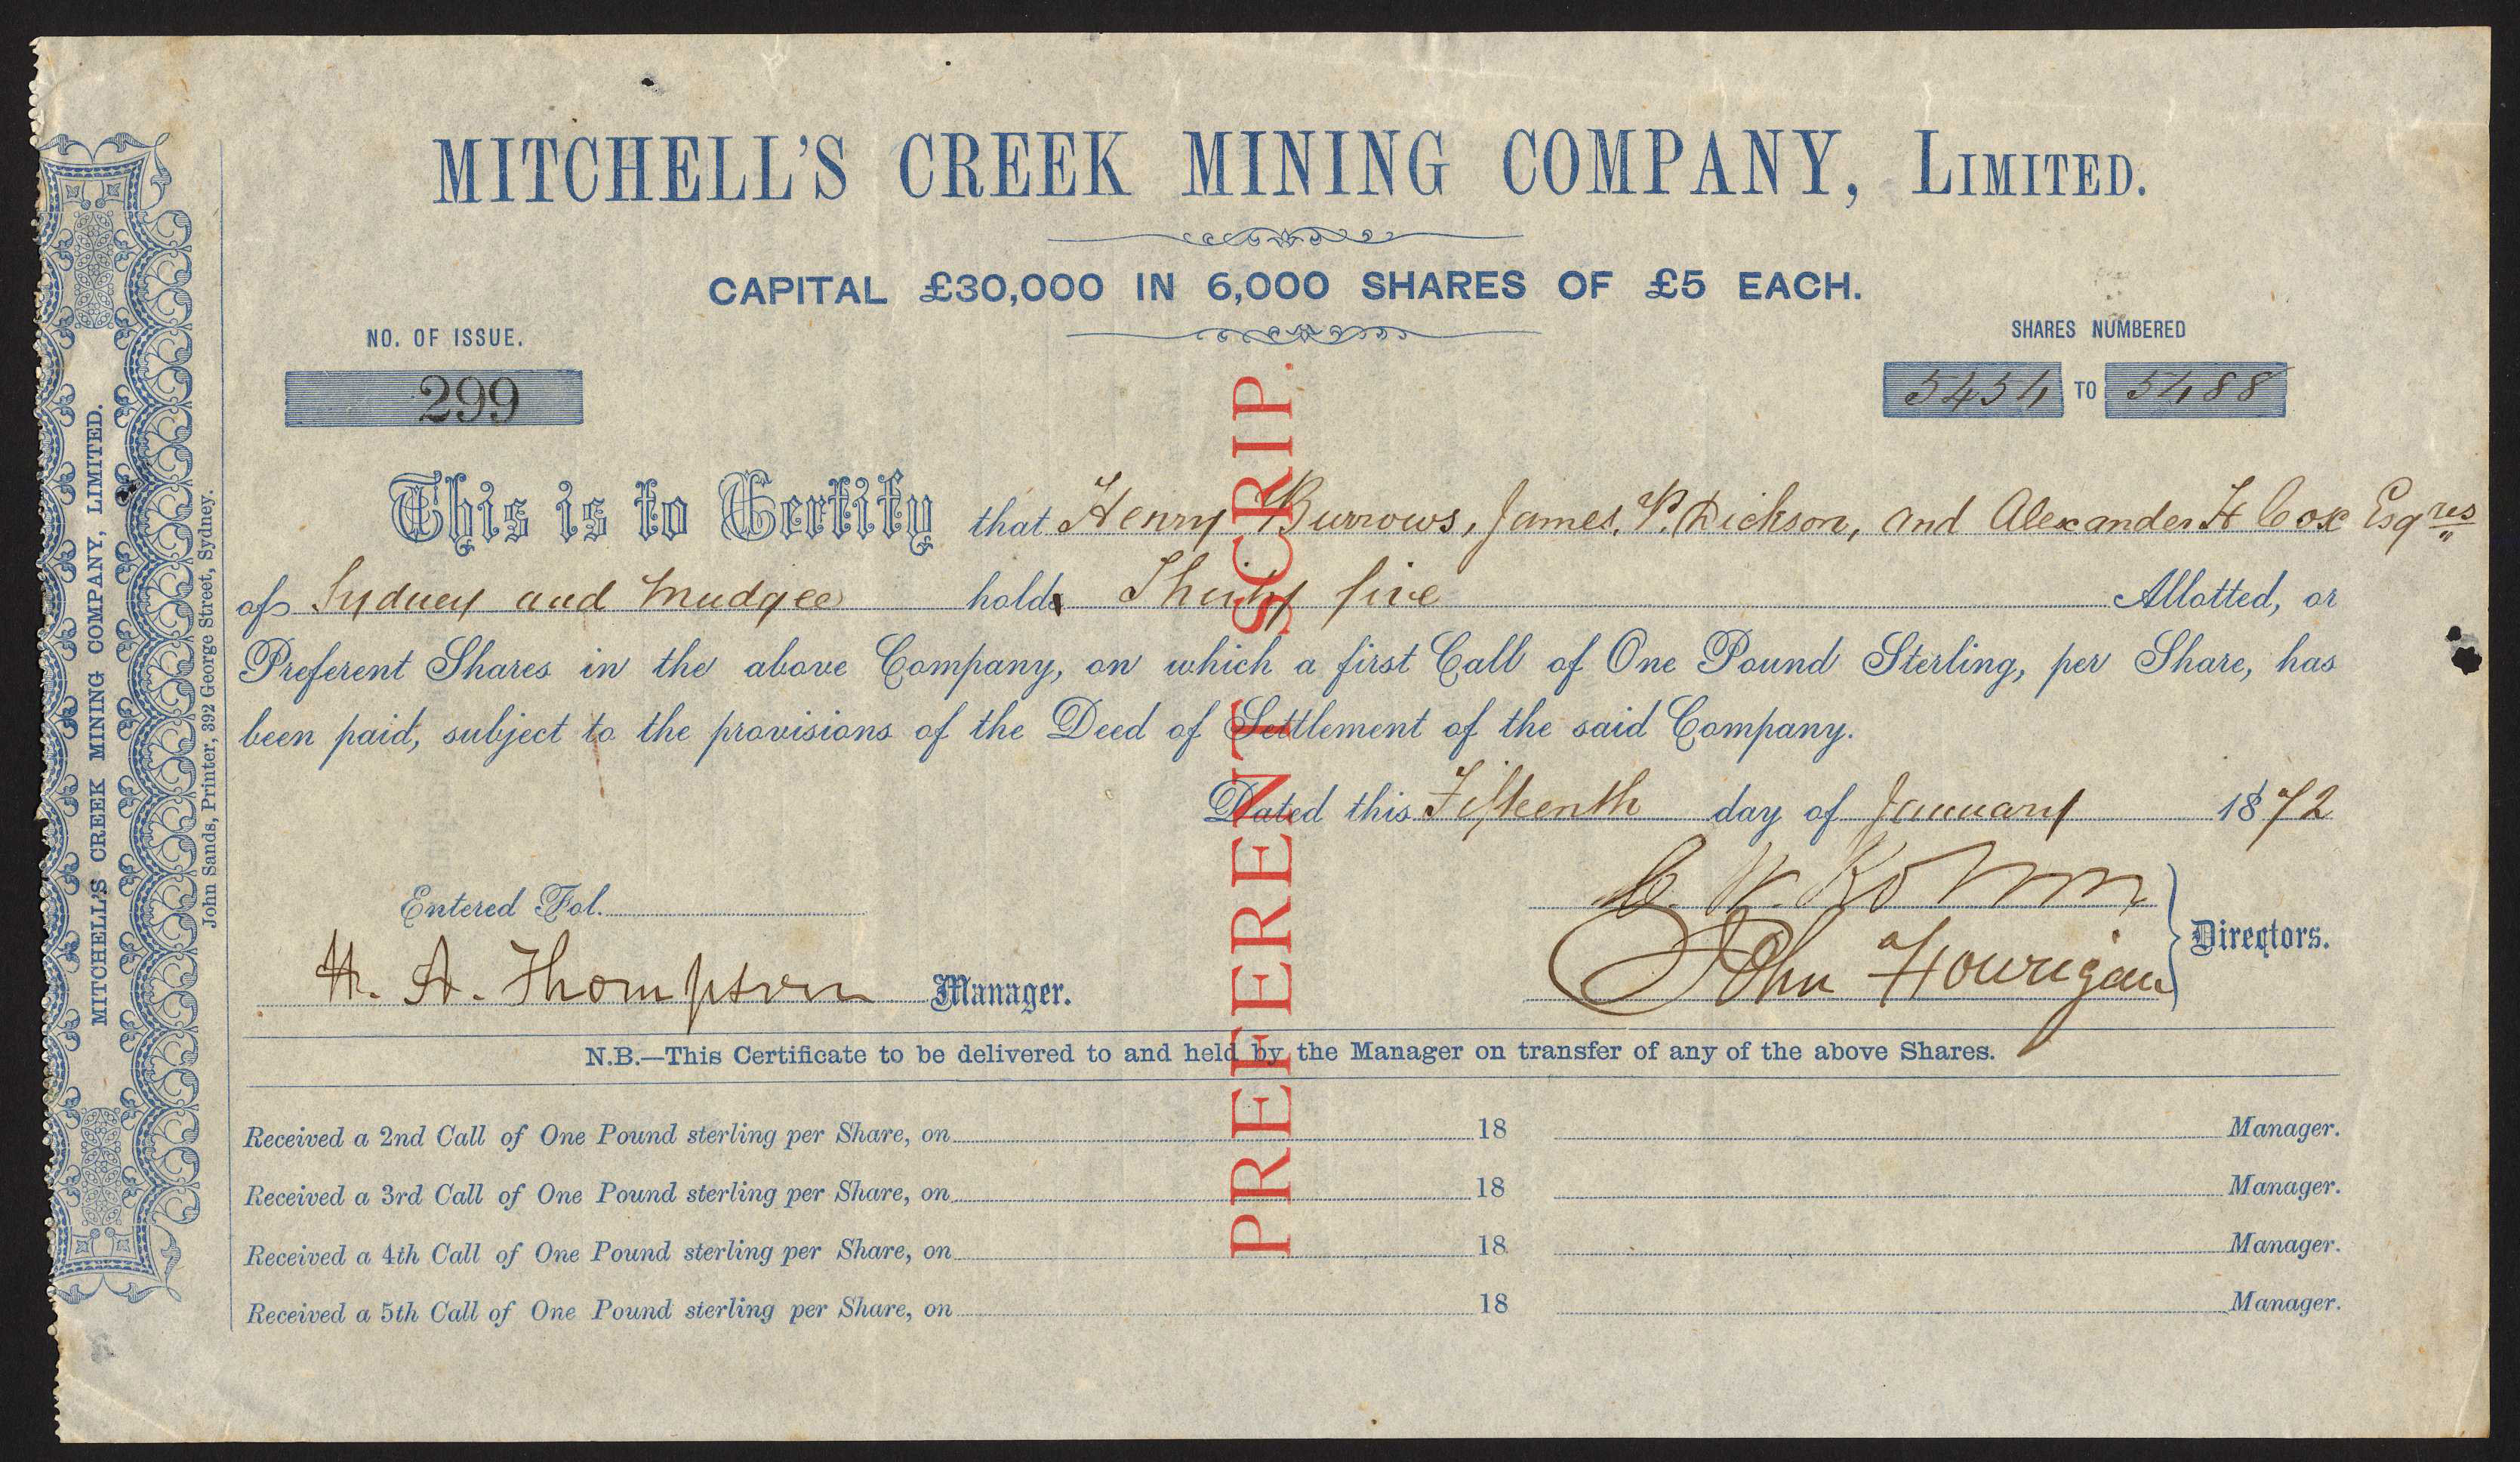 MITCHELL'S CREEK MINING COMPANY, LIMITED.
CAPITAL £30,000 IN 6,000 SHARES OF £5 EACH.
NO. OF ISSUE.
299
SHARES NUMBERED
5454 TO 5488
This is to Certify that Henry Burrows, James. P. Dickson, and Alexander H Cox Esqres
of Sydney and Mudgee hold Thirty five Allotted, or
Preferent Shares in the above Company, on which a first Call of One Pound Sterling, per Share, has
been paid, subject to the provisions of the Deed of Settlement of the said Company.
Dated this Fifteenth day of January 1872
Entered Fol.
C. W.
H. A. Thompson Manager.
John Hourigan
Directors.
N.B.—This Certificate to be delivered to and held by the Manager on transfer of any of the above Shares.
Received a 2nd Call of One Pound sterling per Share, on 18 Manager.
Received a 3rd Call of One Pound sterling per Share, on 18 Manager.
Received a 4th Call of One Pound sterling per Share, on 18 Manager.
Received a 5th Call of One Pound sterling per Share, on 18 Manager.
PREFERENT SCRIP.
MITCHELL'S CREEK MINING COMPANY, LIMITED.
John Sands, Printer, 392 George Street, Sydney.